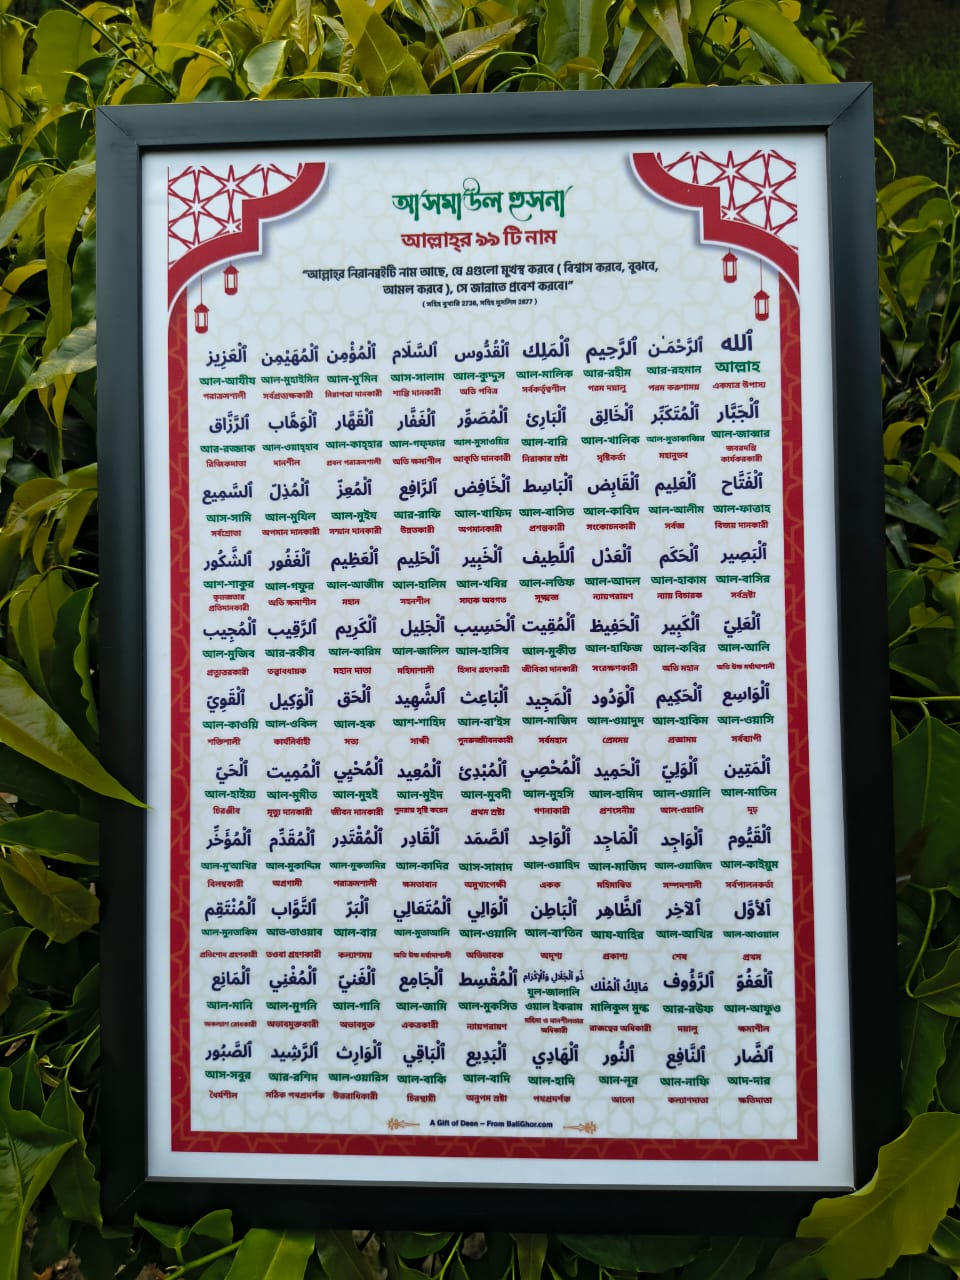 আসমাউল হুসনা
আল্লাহ্‌র ৯৯ টি নাম
“আল্লাহ্‌র নিরানব্বইটি নাম আছে, যে এগুলো মুখস্থ করবে ( বিশ্বাস করবে, বুঝবে,
আমল করবে ), সে জান্নাতে প্রবেশ করবে।”
( সহিহ বুখারি 2736, সহিহ মুসলিম 2677 )
ٱللَّٰه ٱلرَّحْمَـٰن ٱلرَّحِيم ٱلْمَلِك ٱلْقُدُّوس ٱلسَّلَام ٱلْمُؤْمِن ٱلْمُهَيْمِن ٱلْعَزِيز
আল্লাহ আর-রহমান আর-রহীম আল-মালিক আল-কুদ্দুস আস-সালাম আল-মু'মিন আল-মুহাইমিন আল-আযীয
একমাত্র উপাস্য পরম করুণাময় পরম দয়ালু সর্বকর্তৃত্বশীল অতি পবিত্র শান্তি দানকারী নিরাপত্তা দানকারী সর্বপ্রত্যক্ষকারী পরাক্রমশালী
ٱلْجَبَّار ٱلْمُتَكَبِّر ٱلْخَالِق ٱلْبَارِئ ٱلْمُصَوِّر ٱلْغَفَّار ٱلْقَهَّار ٱلْوَهَّاب ٱلرَّزَّاق
আল-জাব্বার আল-মুতাকাব্বির আল-খালিক আল-বারি আল-মুসাওয়ির আল-গফ্ফার আল-কাহ্হার আল-ওয়াহ্হাব আর-রজ্জাক
জবরদস্তি কার্যকরকারী মহানুভব সৃষ্টিকর্তা নিরাকার স্রষ্টা আকৃতি দানকারী অতি ক্ষমাশীল প্রবল পরাক্রমশালী দানশীল রিজিকদাতা
ٱلْفَتَّاح ٱلْعَلِيم ٱلْقَابِض ٱلْبَاسِط ٱلْخَافِض ٱلرَّافِع ٱلْمُعِزّ ٱلْمُذِلّ ٱلسَّمِيع
আল-ফাতাহ আল-আলীম আল-কাবিদ আল-বাসিত আল-খাফিদ আর-রাফি আল-মুইয আল-মুযিল আস-সামি
বিজয় দানকারী সর্বজ্ঞ সংকোচনকারী প্রশস্তকারী অপমানকারী উন্নতকারী সম্মান দানকারী অপমান দানকারী সর্বশ্রোতা
ٱلْبَصِير ٱلْحَكَم ٱلْعَدْل ٱللَّطِيف ٱلْخَبِير ٱلْحَلِيم ٱلْعَظِيم ٱلْغَفُور ٱلشَّكُور
আল-বাসির আল-হাকাম আল-আদল আল-লতিফ আল-খবির আল-হালিম আল-আজীম আল-গফুর আশ-শাকুর
সর্বদ্রষ্টা ন্যায় বিচারক ন্যায়পরায়ণ সূক্ষ্মজ্ঞ সম্যক অবগত সহনশীল মহান অতি ক্ষমাশীল কৃতজ্ঞতার প্রতিদানকারী
ٱلْعَلِيّ ٱلْكَبِير ٱلْحَفِيظ ٱلْمُقِيت ٱلْحَسِيب ٱلْجَلِيل ٱلْكَرِيم ٱلرَّقِيب ٱلْمُجِيب
আল-আলি আল-কবির আল-হাফিজ আল-মুকীত আল-হাসিব আল-জালিল আল-কারিম আর-রকীব আল-মুজিব
অতি উচ্চ মর্যাদাশালী অতি মহান সংরক্ষণকারী জীবিকা দানকারী হিসাব গ্রহণকারী মহিমাশালী মহান দাতা তত্ত্বাবধায়ক প্রত্যুত্তরকারী
ٱلْوَاسِع ٱلْحَكِيم ٱلْوَدُود ٱلْمَجِيد ٱلْبَاعِث ٱلشَّهِيد ٱلْحَق ٱلْوَكِيل ٱلْقَوِيّ
আল-ওয়াসি আল-হাকিম আল-ওয়াদুদ আল-মাজিদ আল-বা'ইস আশ-শাহিদ আল-হক আল-ওকিল আল-কাওয়ি
সর্বব্যাপী প্রজ্ঞাময় প্রেমময় সর্বমহান পুনরুজ্জীবনকারী সাক্ষী সত্য কার্যনির্বাহী শক্তিশালী
ٱلْمَتِين ٱلْوَلِيّ ٱلْحَمِيد ٱلْمُحْصِي ٱلْمُبْدِئ ٱلْمُعِيد ٱلْمُحْيِي ٱلْمُمِيت ٱلْحَيّ
আল-মাতিন আল-ওয়ালি আল-হামিদ আল-মুহসি আল-মুবদী আল-মুইদ আল-মুহই আল-মুমীত আল-হাইয়্য
দৃঢ় আল-ওয়ালি প্রশংসনীয় গণনাকারী প্রথম স্রষ্টা পুনরায় সৃষ্টি করেন জীবন দানকারী মৃত্যু দানকারী চিরঞ্জীব
ٱلْقَيُّوم ٱلْوَاجِد ٱلْمَاجِد ٱلْوَاحِد ٱلصَّمَد ٱلْقَادِر ٱلْمُقْتَدِر ٱلْمُقَدِّم ٱلْمُؤَخِّر
আল-কাইয়ুম আল-ওয়াজিদ আল-মাজিদ আল-ওয়াহিদ আস-সামাদ আল-কাদির আল-মুকতাদির আল-মুকাদ্দিম আল-মু'আখির
সর্বপালনকর্তা সম্পদশালী মহিমান্বিত একক অমুখাপেক্ষী ক্ষমতাবান পরাক্রমশালী অগ্রগামী বিলম্বকারী
ٱلأَوَّل ٱلْآخِر ٱلظَّاهِر ٱلْبَاطِن ٱلْوَالِي ٱلْمُتَعَالِي ٱلْبَرّ ٱلتَّوَّاب ٱلْمُنْتَقِم
আল-আওয়াল আল-আখির আয-যাহির আল-বা'তিন আল-ওয়ালি আল-মুতাআলি আল-বার আত-তাওয়াব আল-মুনতাকিম
প্রথম শেষ প্রকাশ্য অদৃশ্য অভিভাবক অতি উচ্চ মর্যাদাশালী কল্যাণময় তওবা গ্রহণকারী প্রতিশোধ গ্রহণকারী
ٱلْعَفُوّ ٱلرَّؤُوف مَالِكُ ٱلْمُلْك ذُو ٱلْجَلَالِ وَٱلْإِكْرَام ٱلْمُقْسِط ٱلْجَامِع ٱلْغَنِيّ ٱلْمُغْنِي ٱلْمَانِع
আল-আফুও আর-রউফ মালিকুল মুল্ক যুল-জালালি ওয়াল ইকরাম আল-মুকসিত আল-জামি আল-গানি আল-মুগনি আল-মানি
ক্ষমাশীল দয়ালু রাজত্বের অধিকারী মহিমা ও দানশীলতার অধিকারী ন্যায়পরায়ণ একত্রকারী অভাবমুক্ত অভাবমুক্তকারী অকল্যাণ রোধকারী
ٱلضَّار ٱلنَّافِع ٱلنُّور ٱلْهَادِي ٱلْبَدِيع ٱلْبَاقِي ٱلْوَارِث ٱلرَّشِيد ٱلصَّبُور
আদ-দার আল-নাফি আল-নূর আল-হাদি আল-বাদি আল-বাকি আল-ওয়ারিস আর-রশিদ আস-সবুর
ক্ষতিদাতা কল্যাণদাতা আলো পথপ্রদর্শক অনুপম স্রষ্টা চিরস্থায়ী উত্তরাধিকারী সঠিক পথপ্রদর্শক ধৈর্যশীল
A Gift of Deen – From BaliGhor.com